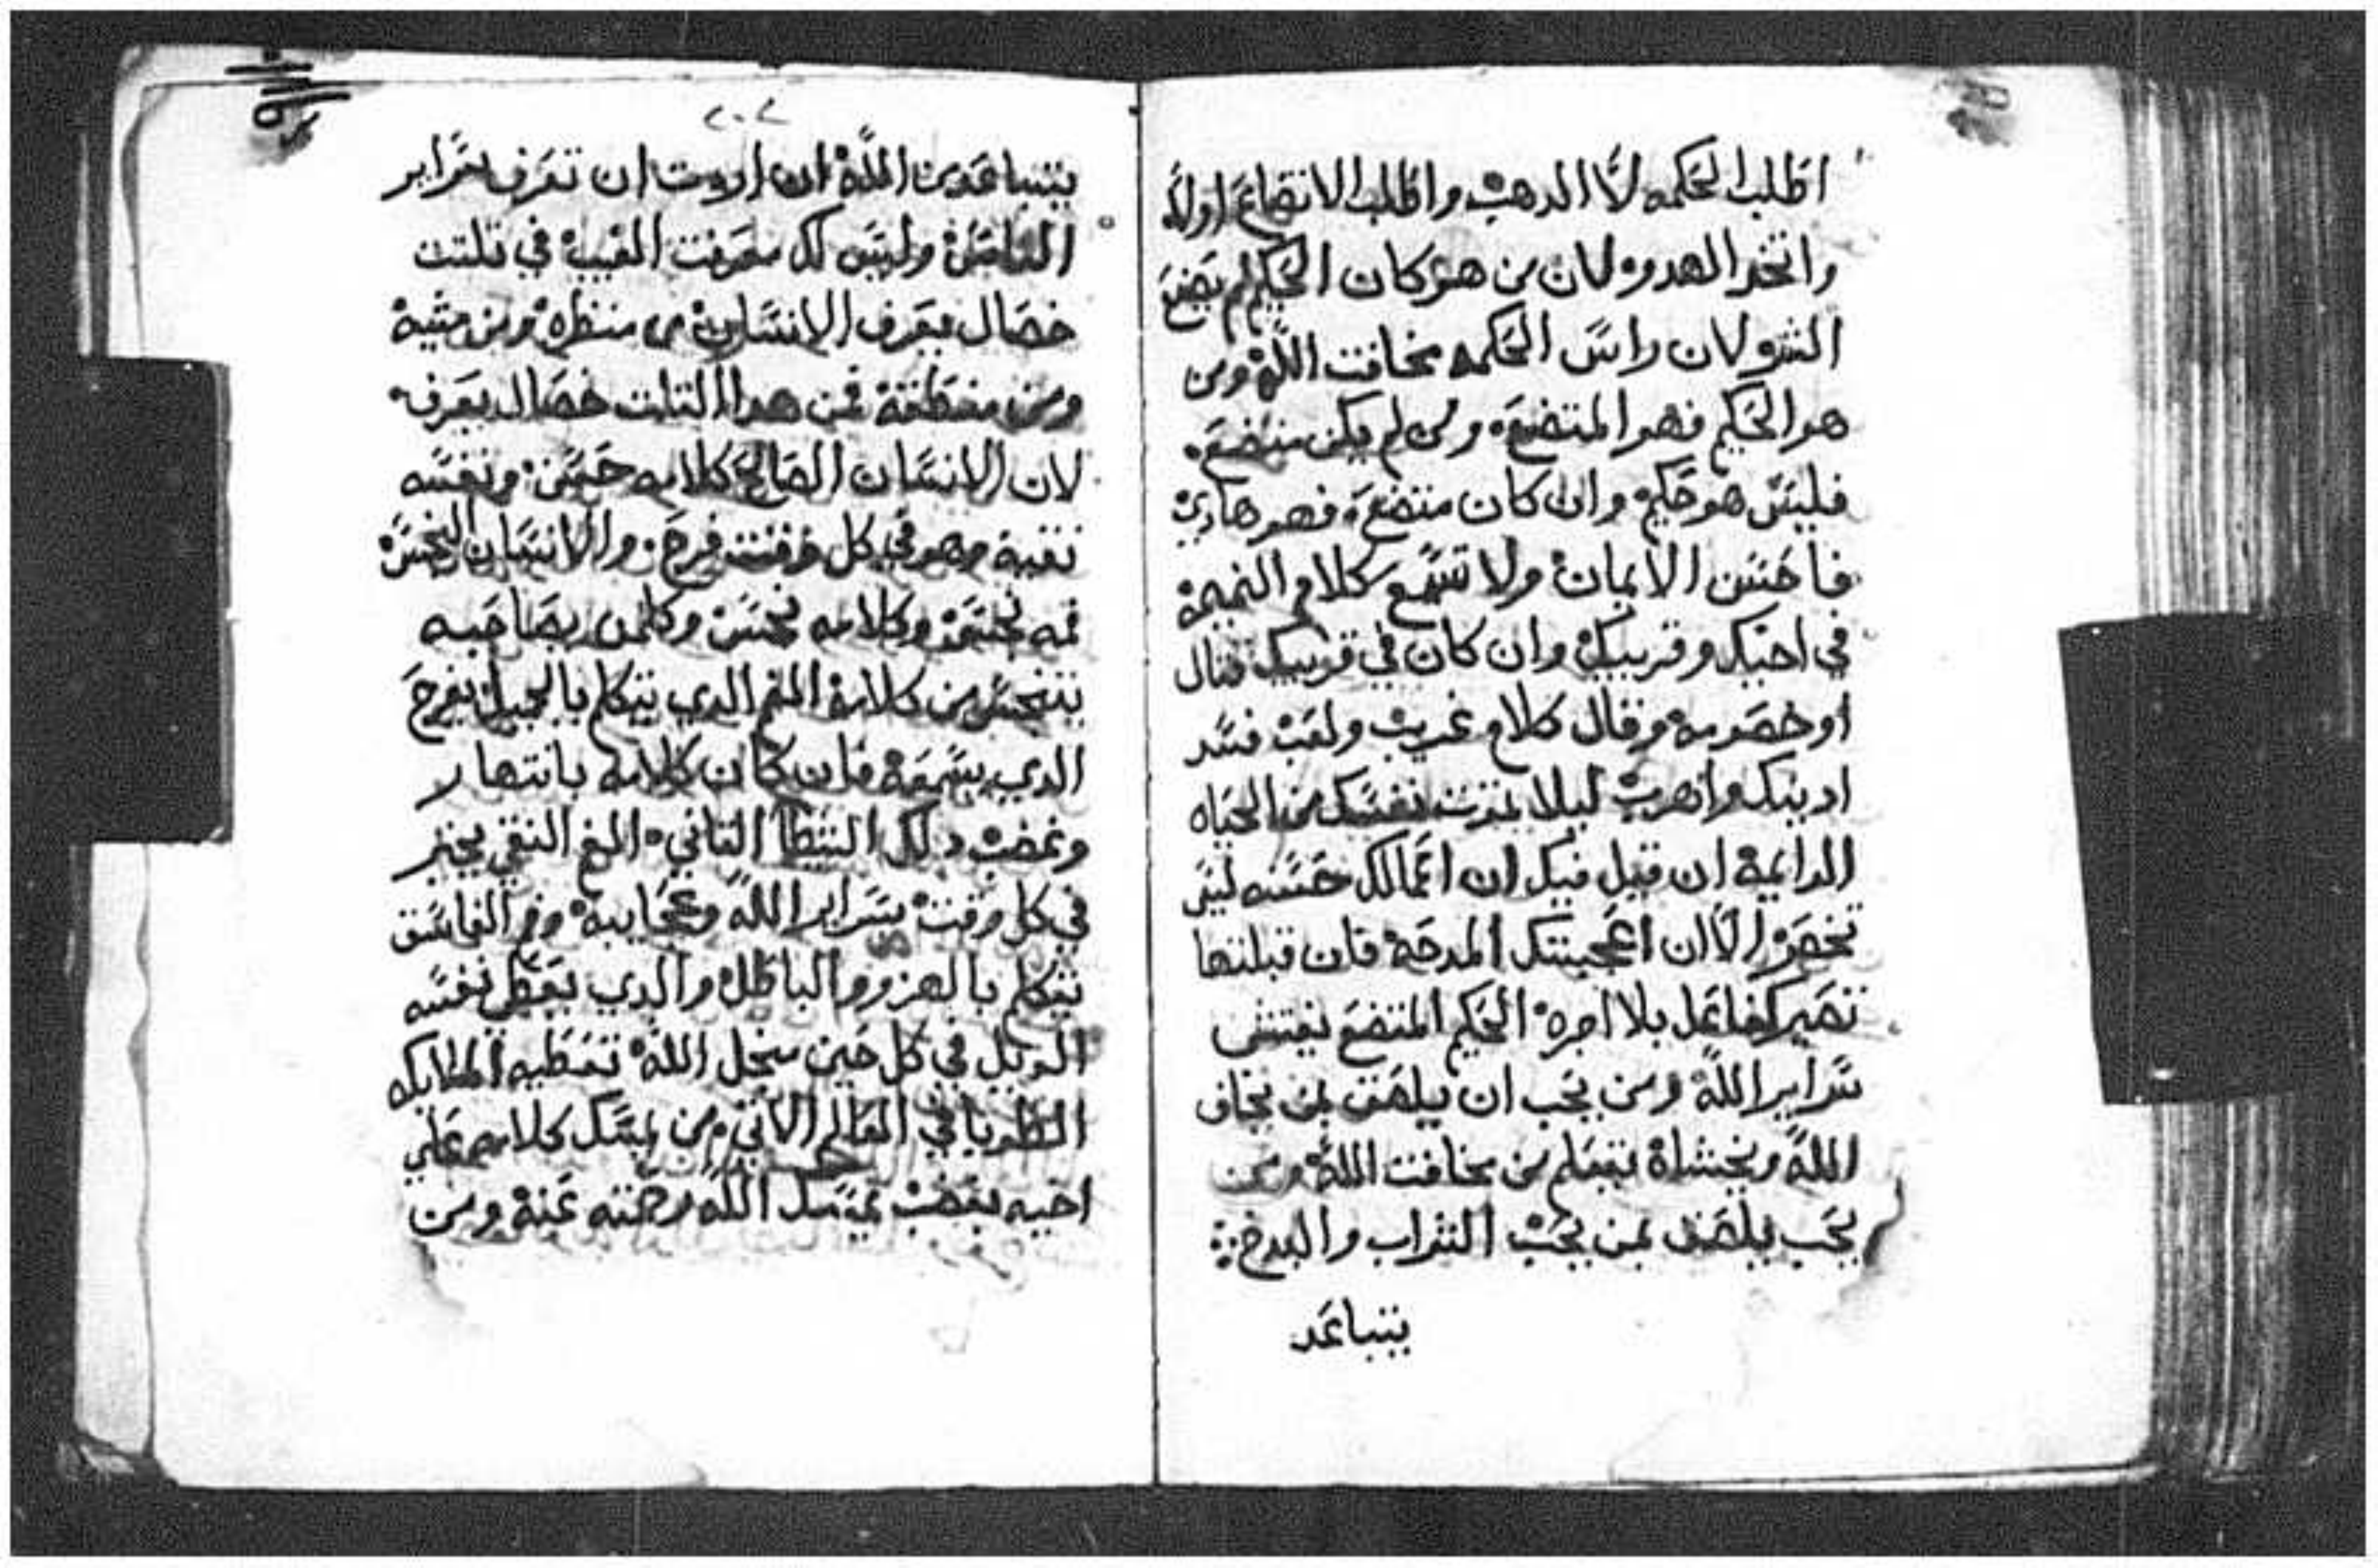 اطلب الحكمه لا الدهب واطلب الاتضاع اولا
واتخد الهدو لان من هو كان الحكيم لم يضع
الشر لان راس الحكمه مخافت الله ومن
هو الحكيم فهو المتضع ومن لم يكن متضع
فليس هو حكيم وان كان متضع فهو هادي
فاحسن الايمان ولا تسمع كلام النميمة
في اخيك وقريبك وان كان في قريبك قتال
او خصومه وقال كلام غريب ولقب فسد
ادنيك واهرب ليلا تمزت نفسك من الحياه
الدايمة ان قيل فيك ان اعمالك حسنه ليس
تخصر الا ان اعجبتك المدحة فان قبلتها
تصير كفاعل بلا اجره الحكيم المتضع يفتش
سراير الله ومن يحب ان يلصق بمن يخاف
الله ويخشاة يتعلم من مخافت الله ومن
يحب يلصق بمن يحب التراب والبدخ
يتباعد
٢٠٢
يتباعد من الله ان اردت ان تعرف سراير
الناس وليس لك معرفت الغيب في تلتت
خصال يعرف الانسان من منظره ومن مشية
ومن منطقة فمن هدا التلت خصال يعرف
لان الانسان الصالح كلامه حسن ونفسه
نقية وهو في كل وقت فرح والانسان النجس
فمه نجس وكلامه نجس وكلمن يصاحبه
يتنجس من كلامة الفم الدي يتكلم بالجميل يفرح
الدي يسمعة فان كان كلامه بانتهار
وغضب دلك الخطا التاني الفم النقي يخبر
في كل وقت بسراير الله وعجايبة وفم الفاسق
يتكلم بالهزو والباطل والدي يعطي نفسه
الويل في كل حين من اجل الله تعطيه الملايكه
الطوبا في العالم الاتي ومن يمسك كلامه علي
اخيه بغضب يمسك الله رحمته عنة ومن